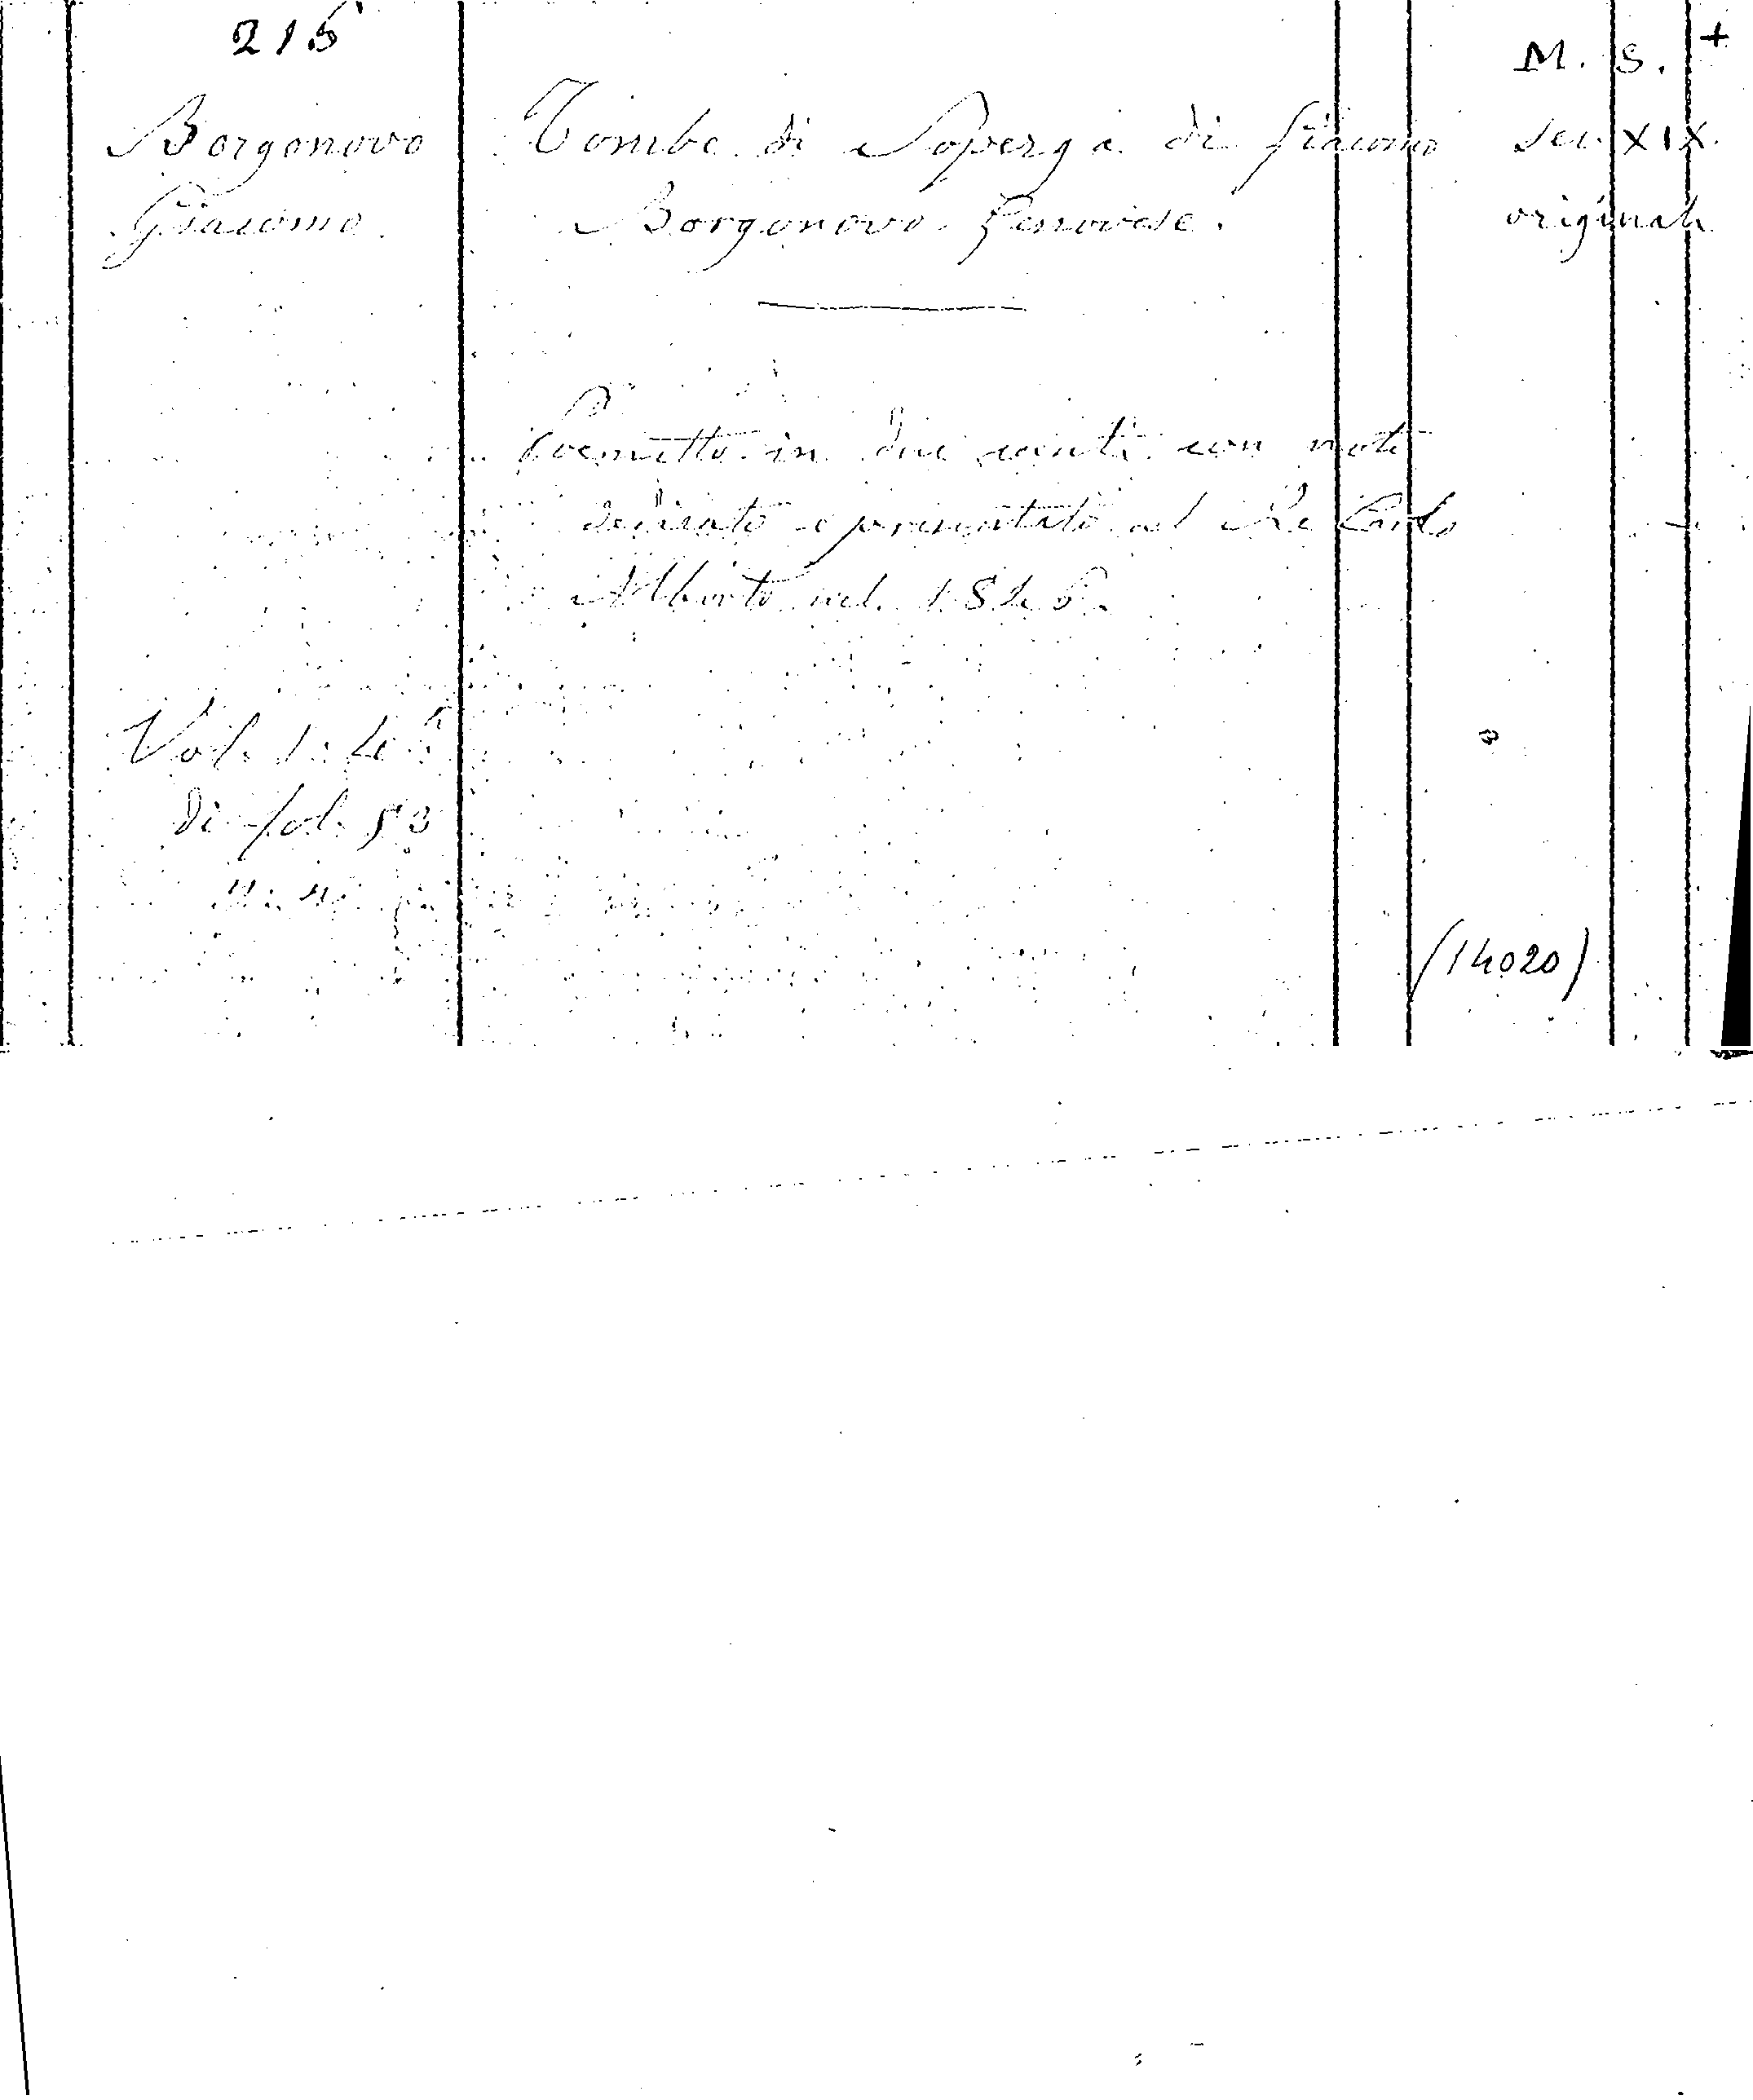 215
M. S. +
Borgonovo
Giacomo
Tombe di Soperga di Giacomo
Borgonovo Genovese.
Sec. XIX.
originale
Poemetto in due canti con note
dedicato e presentato al Re Carlo
Alberto nel 1846.
Vol. 1. in 4°
di fol. 53
(14020)